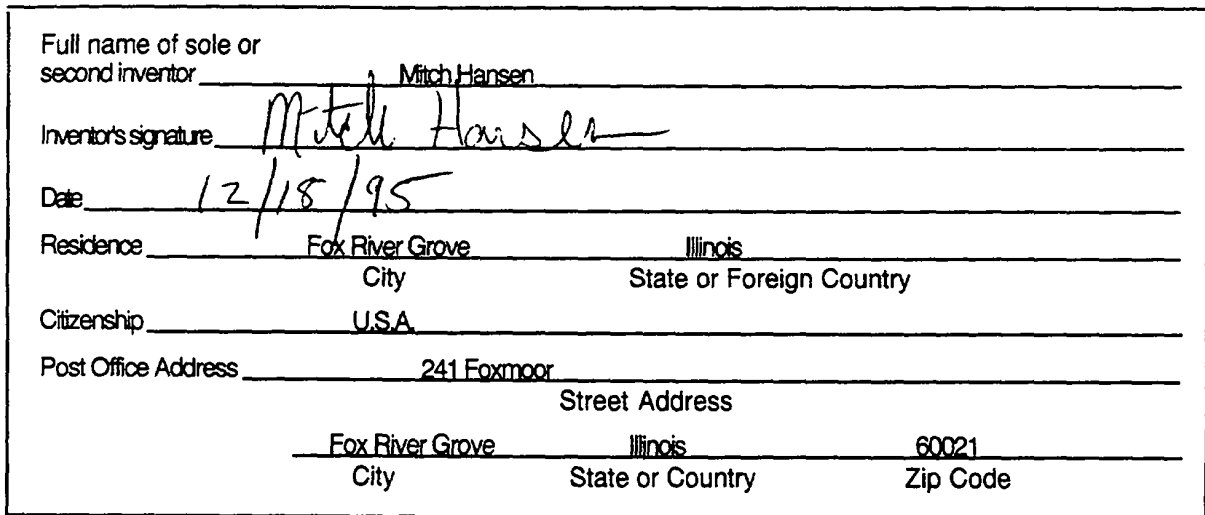 Full name of sole or
second inventor Mitch Hansen
Inventor's signature Mitch Hansen
Date 12/18/95
Residence Fox River Grove Illinois
City State or Foreign Country
Citizenship U.S.A.
Post Office Address 241 Foxmoor
Street Address
Fox River Grove Illinois 60021
City State or Country Zip Code